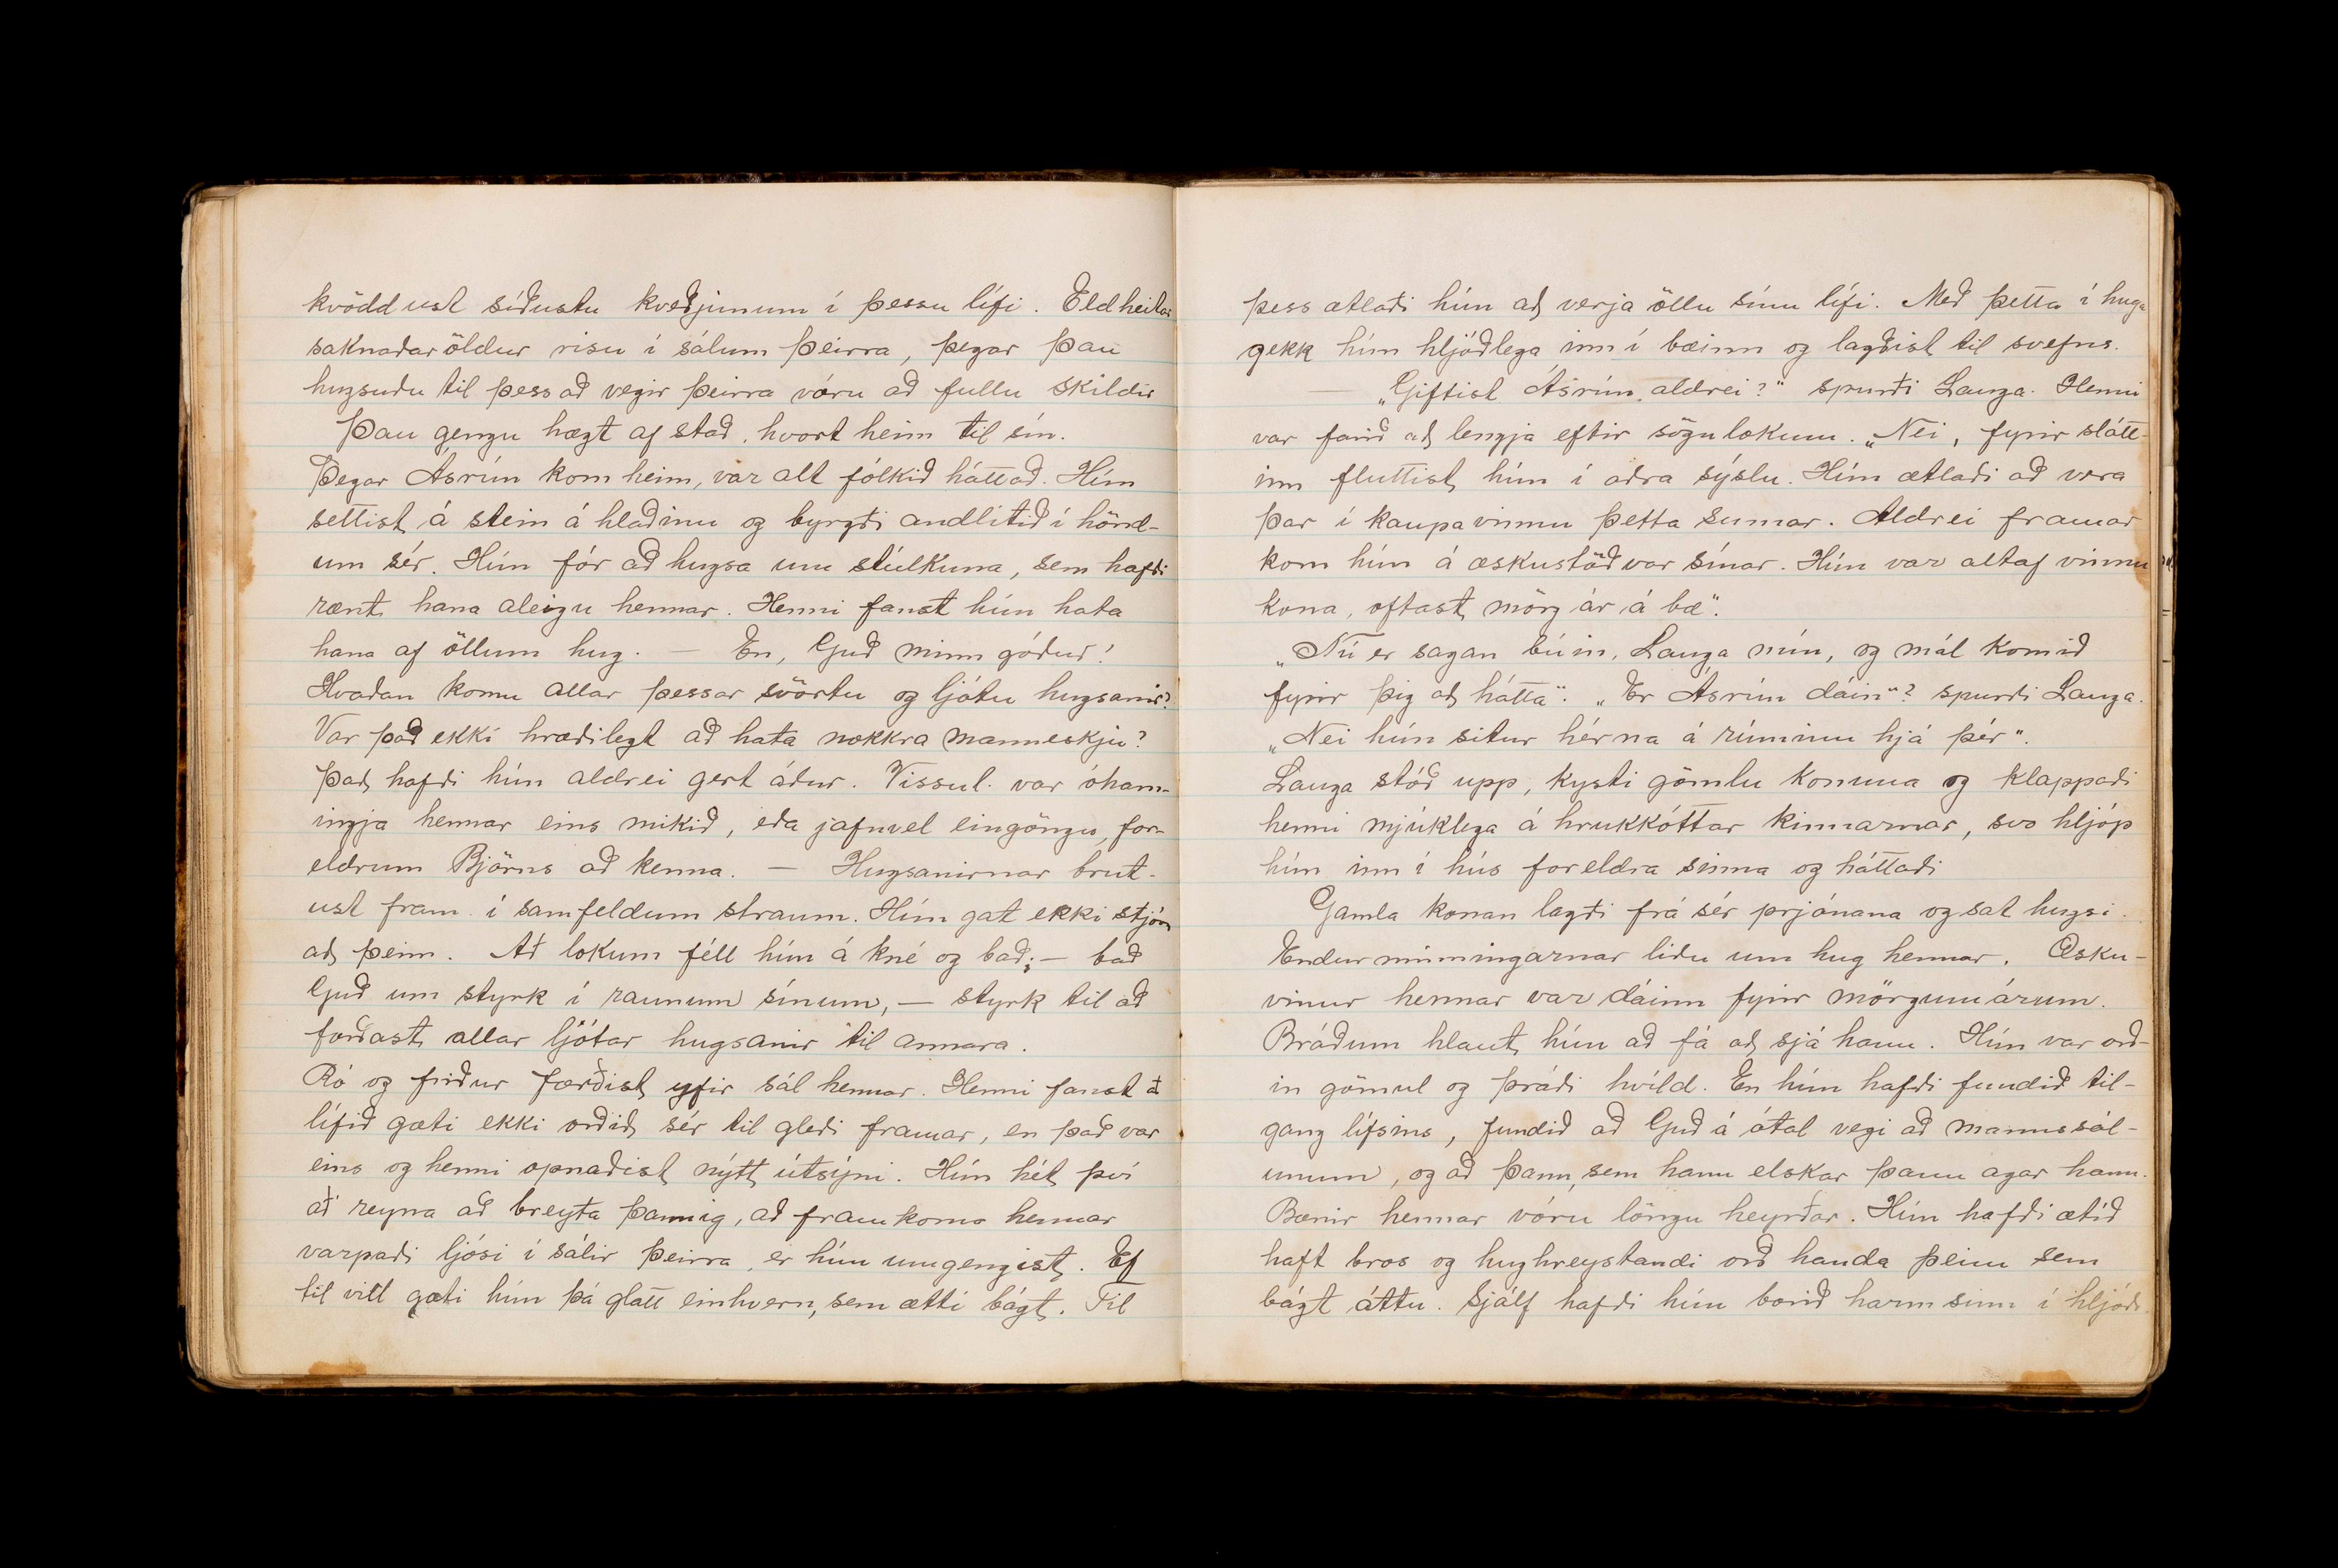 kvöddust síðustu kveðjunum í þessu lífi. Eldheitar
saknaðaröldur risu í sálum þeirra, þegar þau
hugsuðu til þess að vegir þeirra vóru að fullu skildir
Þau gengu hægt af stað, hvort heim til sín.
Þegar Ásrún kom heim, var alt fólkið háttað. Hún
settist á stein á hlaðinu og byrgði andlitið í hönd-
um sér. Hún fór að hugsa um stúlkuna, sem hafði
rænt hana aleigu hennar. Henni fanst hún hata
hana af öllum hug. — En, Guð minn góður!
Hvaðan komu allar þessar svörtu og ljótu hugsanir?
Var það ekki hræðilegt að hata nokkra manneskju?
Það hafði hún aldrei gert áður. Vissul. var óham-
ingja hennar eins mikið, eða jafnvel eingöngu, for-
eldrum Björns að kenna. — Hugsanirnar brut-
ust fram í samfeldum straum. Hún gat ekki stjórn
að þeim. Að lokum féll hún á kné og bað; — bað
Guð um styrk í raunum sínum, — styrk til að
forðast allar ljótar hugsanir til annara.
Ró og friður færðist yfir sál hennar. Henni fanst að
lífið gæti ekki orðið sér til gleði framar, en það var
eins og henni opnaðist nýtt útsýni. Hún hét því
að reyna að breyta þannig, að framkoma hennar
varpaði ljósi í sálir þeirra, er hún umgengist. Ef
til vill gæti hún þá glatt einhvern, sem ætti bágt. Til
þess ætlaði hún að verja öllu sínu lífi. Með þetta í huga
gekk hún hljóðlega inn í bæinn og lagðist til svefns.
„Giftist Ásrún aldrei?" spurði Lauga. Henni
var farið að lengja eftir sögulokum. „Nei, fyrir slátt-
inn fluttist hún í aðra sýslu. Hún ætlaði að vera
þar í kaupavinnu þetta sumar. Aldrei framar
kom hún á æskustöðvar sínar. Hún var altaf vinnu
kona, oftast mörg ár á bæ".
„Nú er sagan búin, Lauga mín, og mál komið
fyrir þig að hátta". „Er Ásrún dáin"? spurði Lauga.
„Nei hún situr hérna á rúminu hjá þér".
Lauga stóð upp, kysti gömlu konuna og klappaði
henni mjúklega á hrukkóttar kinnarnar, svo hljóp
hún inn í hús foreldra sinna og háttaði
Gamla konan lagði frá sér prjónana og sat hugsi.
Endurminningarnar liðu um hug hennar. Æsku-
vinur hennar var dáinn fyrir mörgum árum.
Bráðum hlaut hún að fá að sjá hann. Hún var orð-
in gömul og þráði hvíld. En hún hafði fundið til-
gang lífsins, fundið að Guð á ótal vegi að mannssál-
unum, og að þann, sem hann elskar þann agar hann.
Bænir hennar vóru löngu heyrðar. Hún hafði ætíð
haft bros og hughreystandi orð handa þeim sem
bágt áttu. Sjálf hafði hún borið harm sinn í hljóði.